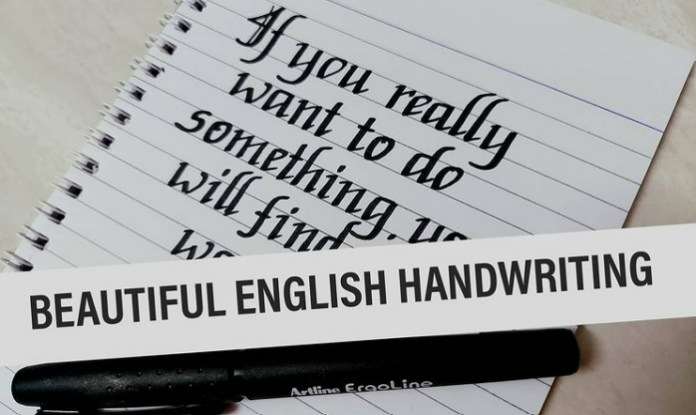 If you really
want to do
something, yo
will find
w
BEAUTIFUL ENGLISH HANDWRITING
Artline ErgoLine